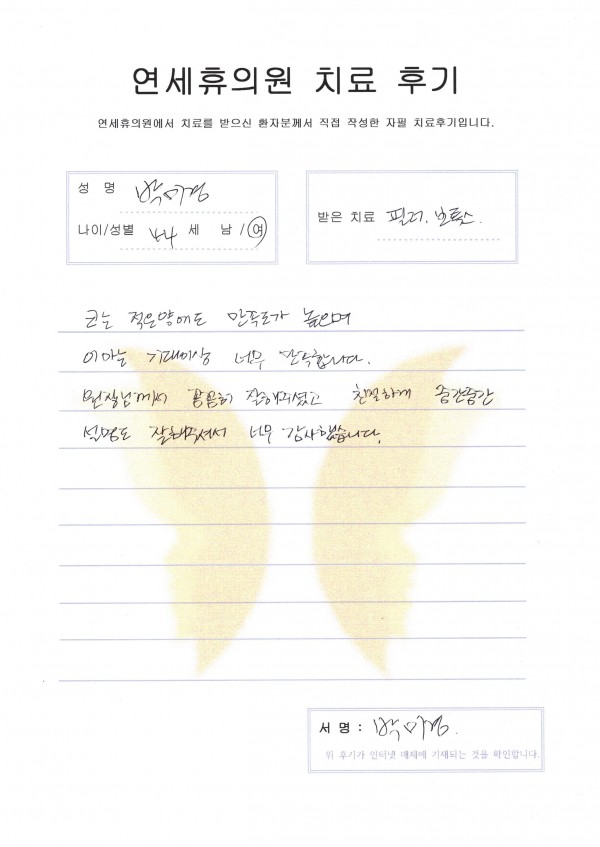 연세휴의원 치료 후기
연세휴의원에서 치료를 받으신 환자분께서 직접 작성한 자필 치료후기입니다.
성 명 박미경
나이/성별 44 세 남 / 여
받은 치료 필러, 보톡스.
코는 적은양에도 만족도가 높으며
이마는 기대이상 너무 만족합니다.
원장님께서 꼼꼼히 잘해주셨고 친절하게 중간중간
설명도 잘해주셔서 너무 감사했습니다.
서 명 : 박미경.
위 후기가 인터넷 매체에 기재되는 것을 확인합니다.